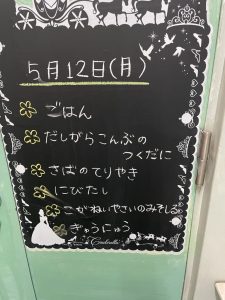 5月12日(月)
ごはん
だしがらこんぶの
つくだに
さばのてりやき
にびたし
こがねいやさいのみそしる
ぎゅうにゅう
Cinderella